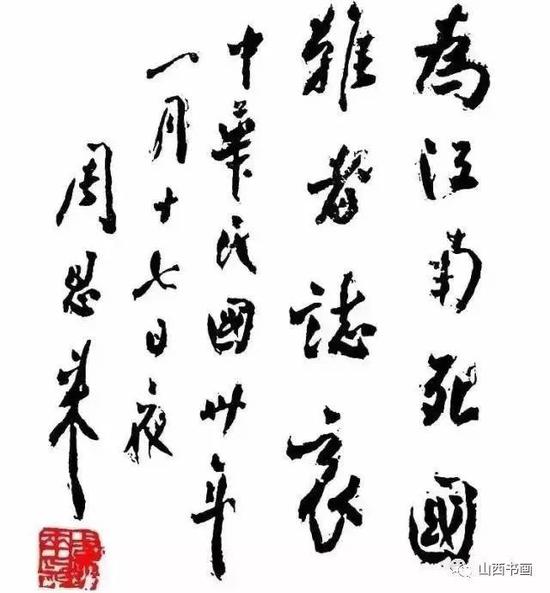 為江南死國
難者誌哀
中華民國卅年
一月十七日夜
周恩來
山西书画